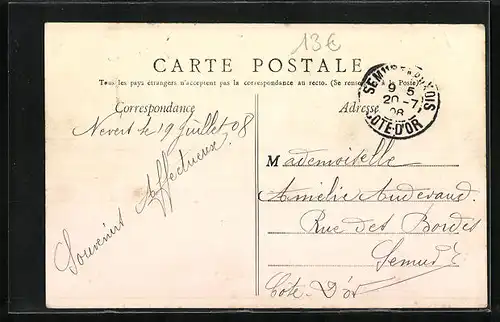 13€
CARTE POSTALE
Tous les pays étrangers n'acceptent pas la correspondance au recto. (Se renseigner à la Poste)
Correspondance
Adresse
SEMUR-EN-AUXOIS
9 5
20-7
08
COTE-D'OR
le 19 Juillet 08
Souvenirs Affectueux
Mademoiselle
Amélie
Rue des Bordes
Semur
Côte-D'or